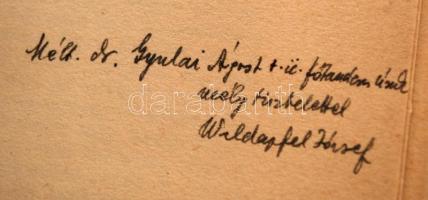 Mélt. dr. Gyulai Ágost t. ü. főtanácsos úrnak
mély tisztelettel
Waldapfel József